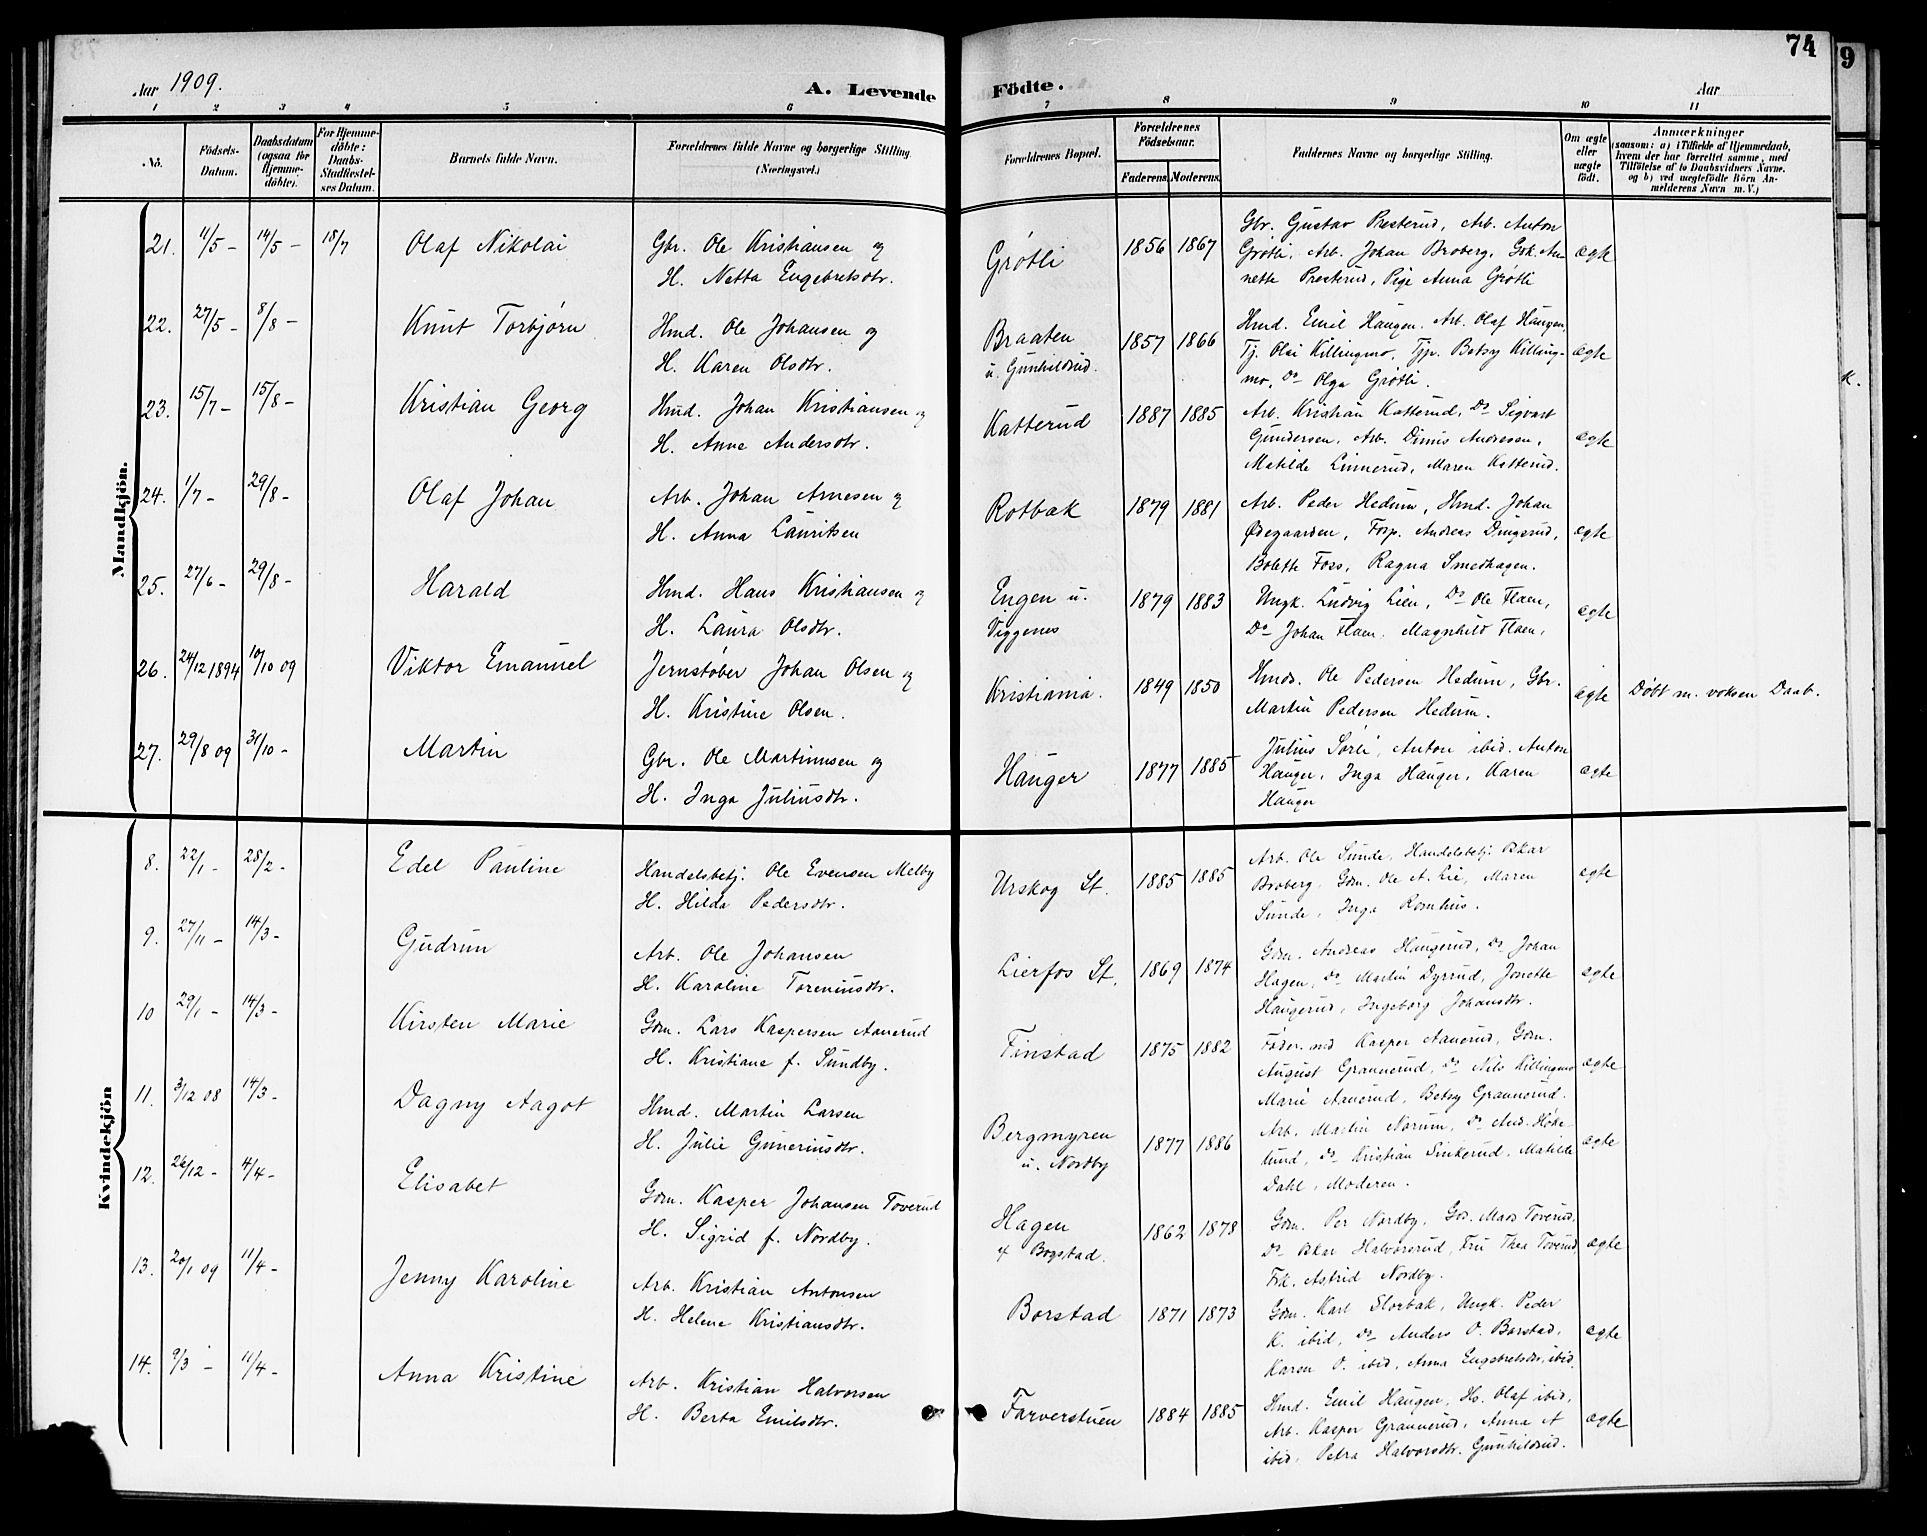 Aar 1909.
A. Levende Födte.
Aar
74
9
1 2 3 4 5 6 7 8 9 10 11
No.
Födsels-Datum.
Daabsdatum (ogsaa for Hjemme-døbte).
For Hjemme-døbte: Daabs-Stadfæstel-ses Datum.
Barnets fulde Navn.
Forældrenes fulde Navne og borgerlige Stilling. (Næringsvei.)
Forældrenes Bopæl.
Forældrenes Födselsaar.
Faderens. Moderens.
Faddernes Navne og borgerlige Stilling.
Om ægte eller uægte født.
Anmærkninger
(saasom: a) i Tilfælde af Hjemmedaab, hvem der har forrettet samme, med Tilföielse af to Daabsvidners Navne. og b) ved uægtefødte Börn Anmelderens Navn m. V.)
Mandkjön.
21. 11/5 - 14/5 - 18/7 Olaf Nikolai
Gbr. Ole Kristiansen og
H. Netta Engebretsdtr.
Grøtli 1856 1867
Gbr. Gustav Presterud, Arb. Anton
Grøtli, Arb. Johan Broberg, Gok. An-
nette Presterud, Pige Anna Grøtli
ægte
22. 27/5 - 8/8 - Knut Torbjørn
Hmd. Ole Johansen og
H. Karen Olsdtr.
Braaten
u. Gunhildsrud. 1857 1866
Hmd. Emil Haugen. Arb. Olaf Haugen,
Tj. Olai Killingmo, Tjp. Betsy Killing-
mo, Do Olga Grøtli.
ægte
23. 15/7 - 15/8 - Kristian Georg
Hmd. Johan Kristiansen og
H. Anne Andersdtr.
Katterud 1887 1885
Arb. Kristian Katterud, Do Sigvart
Gundersen, Arb. Dinis Andresen,
Matilde Linnerud, Maren Katterud.
ægte
24. 1/7 - 29/8 - Olaf Johan
Arb. Johan Arnesen og
H. Anna Lauritsen
Rotbak 1879 1881
Arb. Peder Hedum, Hmd. Johan
Ødegaarden, Forp. Andreas Dingsrud,
Bolette Foss, Ragna Smedhagen.
ægte
25. 27/6 - 29/8 - Harald
Hmd. Hans Kristiansen og
H. Laura Olsdtr.
Engen u.
Viggenes 1879 1883
Ungk. Ludvig Lien, Do Ole Flaen,
Do Johan Flaen. Magnhild Flaen,
ægte
26. 24/12 1894 10/10 09 Viktor Emanuel
Jernstøber Johan Olsen og
H. Kristine Olsen.
Kristiania. 1849 1850
Hmds. Ole Pedersen Hedum, Gbr.
Martin Pedersen Hedum.
ægte Døbt m. voksen Daab.
27. 29/8 09 31/10 - Martin
Gbr. Ole Martinusen og
H. Inga Juliusdtr.
Hauger 1877 1885
Julius Sørli, Anton ibid. Anton
Hauger, Inga Hauger, Karen
Hauger
ægte
Kvindekjön
8. 22/1 - 28/2 - Edel Pauline
Handelsbetj. Ole Evensen Melby
H. Hilda Pedersdtr.
Urskog St. 1885 1885
Arb. Ole Sunde, Handelsbetj. Oskar
Broberg, Gdm. Ole A. Lie, Maren
Sunde, Inga Romhus.
ægte
9. 27/11 - 14/3 - Gudrun
Arb. Ole Johansen
H. Karoline Toreniusdtr.
Lierfos St. 1869 1874
Gdm. Andreas Haugerud, Do Johan
Hagen, Do Martin Dyrrud, Jonette
Haugerud, Ingeborg Johansdtr.
ægte
10 29/1 - 14/3 - Kirsten Marie
Gdm. Lars Kaspersen Aanerud
H. Kristiane f. Sundby.
Finstad 1875 1882
Føder.md Kasper Aanerud, Gdm.
August Grannerud, Do Nils Killingmo
Marie Aanerud, Betsy Grannerud.
ægte
11. 3/12 08 14/3 - Dagny Aagot
Hmd. Martin Larsen
H. Julie Gunneriusdtr.
Bergmyren
u. Nordby 1877 1886
Arb. Martin Narum, Do And. Høke-
lund, Do Kristian Sinkerud, Matilde
Dahl, Moderen.
ægte
12. 26/12 - 4/4 - Elisabet
Gdm. Kasper Johansen Toverud
H. Sigrid f. Nordby.
Hagen
af Bogstad. 1862 1878
Gdm. Per Nordby, Gds. Mads Toverud,
Do Oskar Halvorsrud, Fru Thea Toverud
Frk. Astrid Nordby.
ægte
13. 20/1 09 11/4 - Jenny Karoline
Arb. Kristian Antonsen
H. Helene Kristiansdtr.
Borstad 1871 1873
Gdm. Karl Slorbak, Ungk. Peder
K. ibid, Do Anders O. Borstad,
Karen O. ibid, Anna Engebretsdtr, ibid.
ægte
14. 9/3 - 11/4 - Anna Kristine
Arb. Kristian Halvorsen
H. Berta Emilsdtr.
Farverstuen 1884 1885
Hmd. Emil Haugen, Hs. Olaf ibid,
Arb. Kasper Grannerud, Anna A
ibid. Petra Halvorsdtr. Gunhildsrud.
ægte
k.